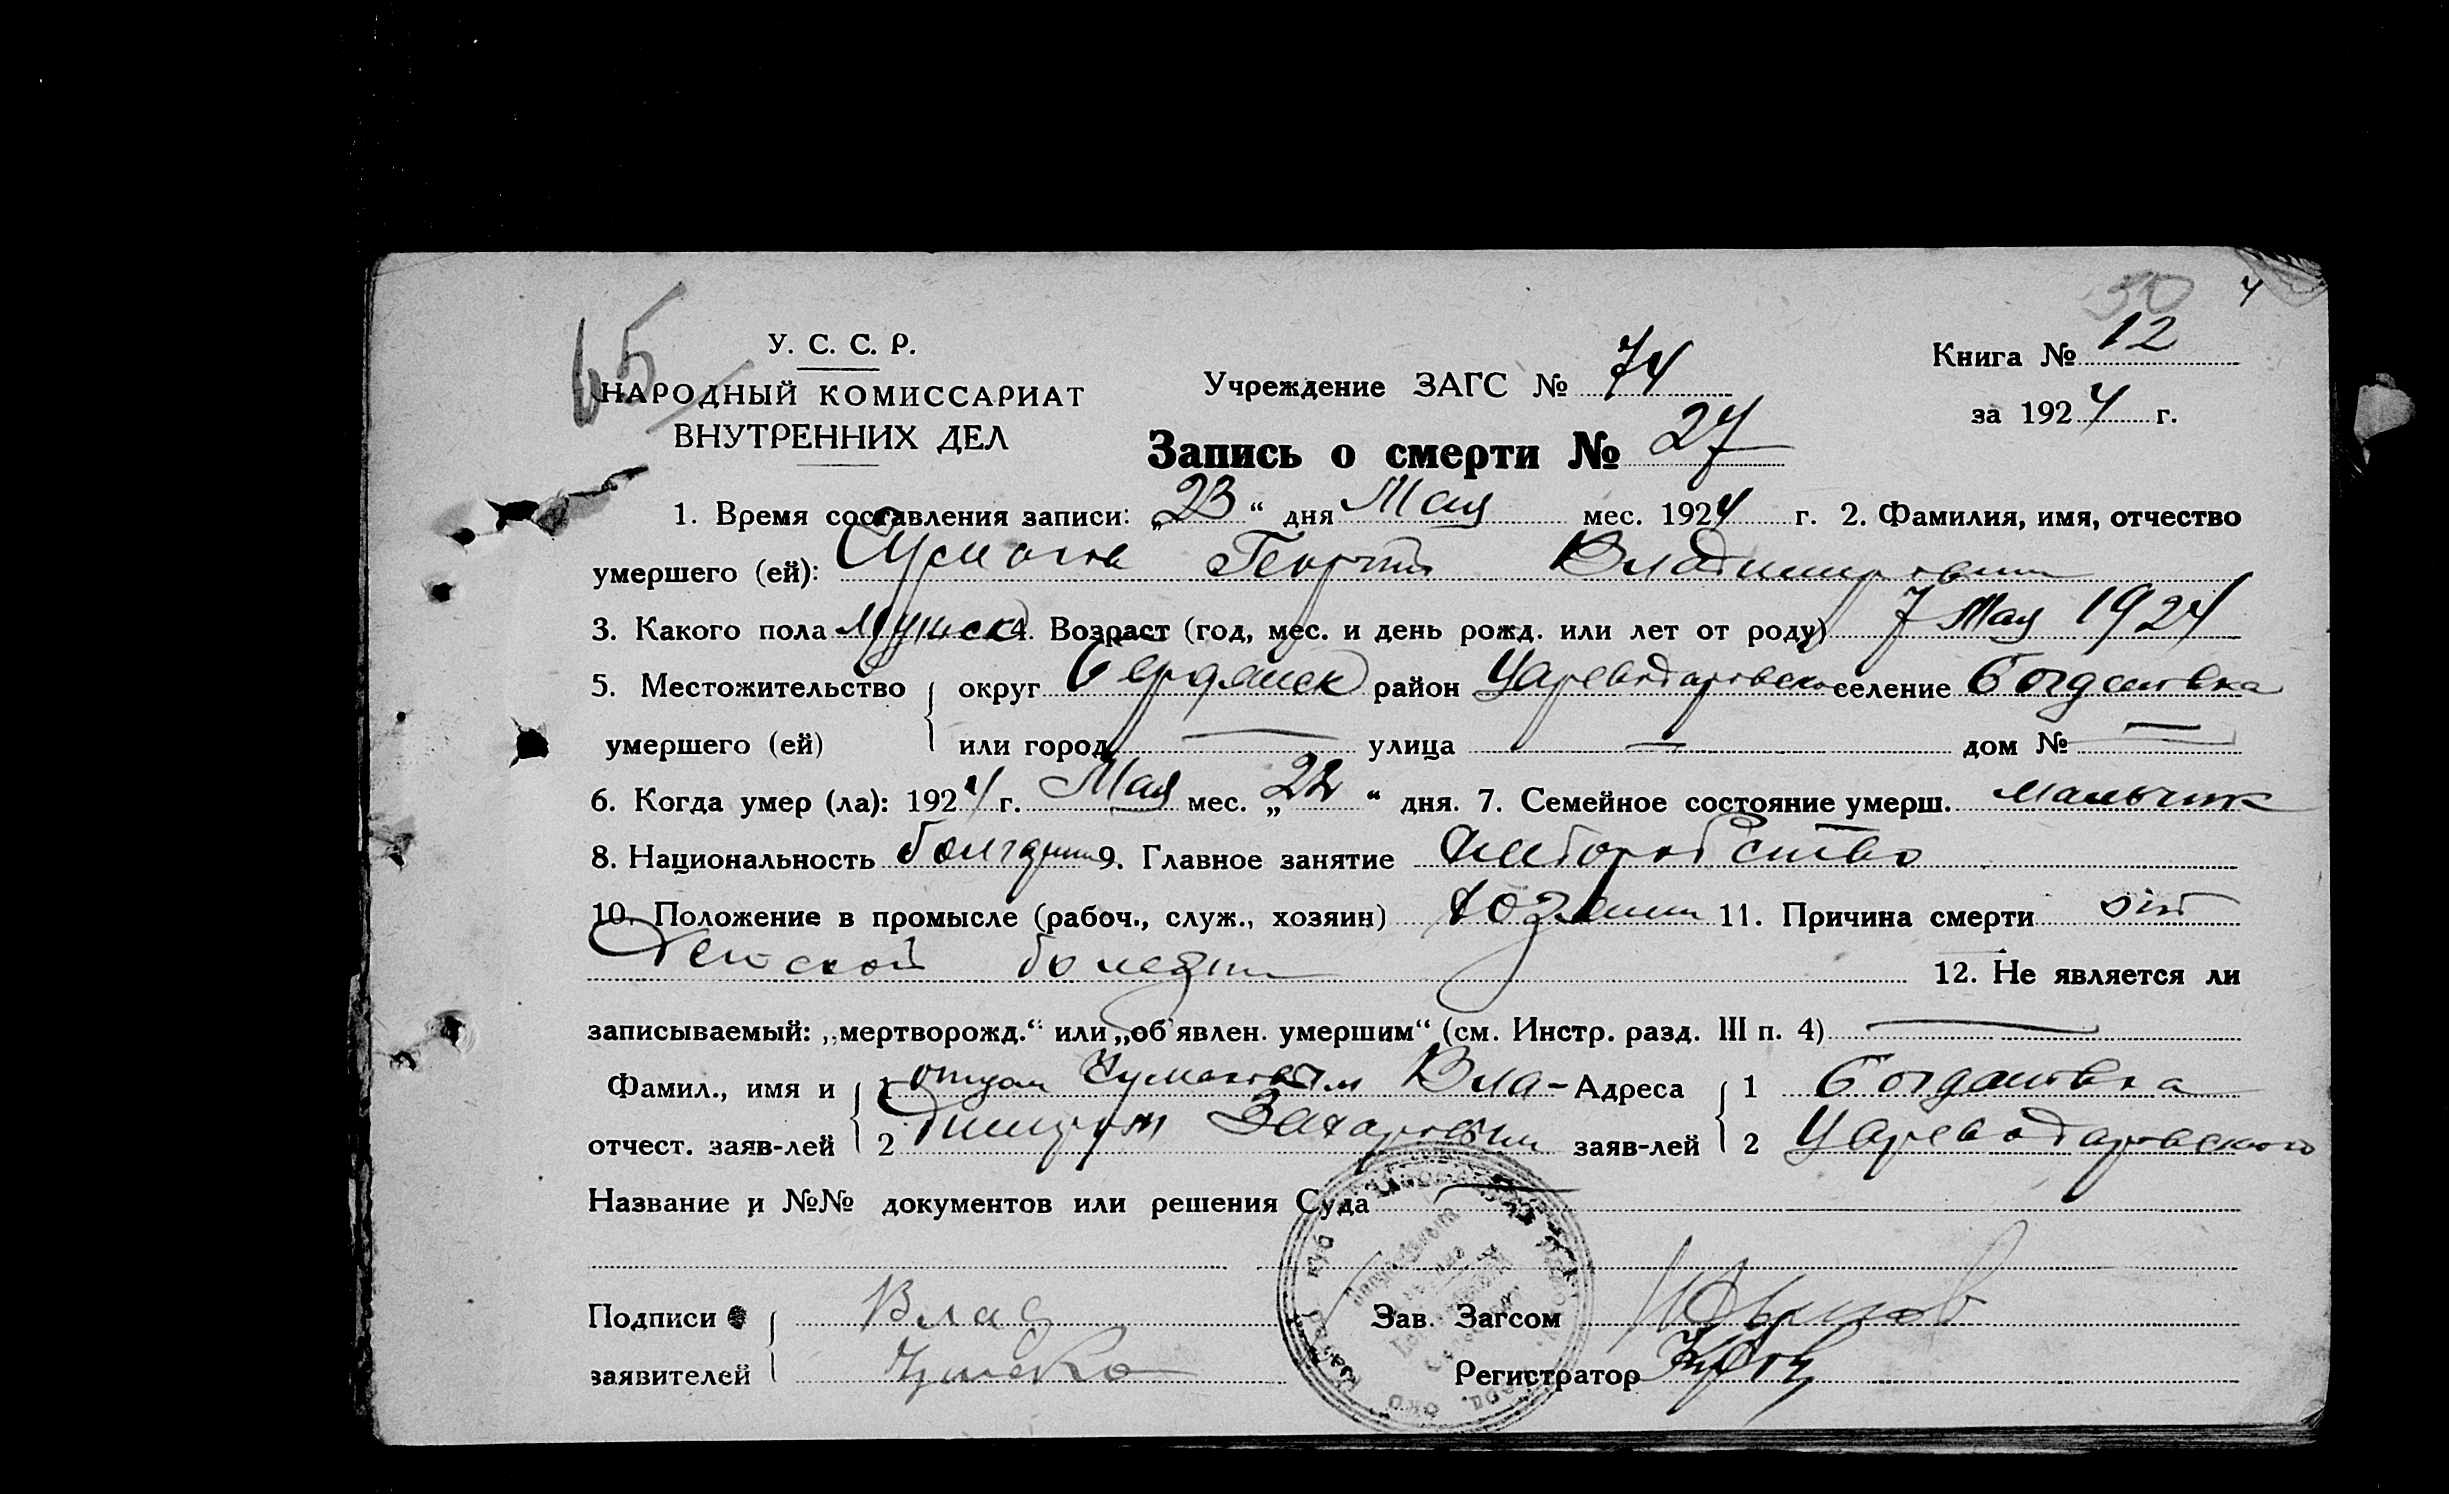 65
50
4
У. С. С. Р.
НАРОДНЫЙ КОМИССАРИАТ
ВНУТРЕННИХ ДЕЛ
Учреждение ЗАГС № 74
Книга № 12
за 1924 г.
Запись о смерти № 27
1. Время составления записи: „23“ дня Мая мес. 1924 г. 2. Фамилия, имя, отчество
умершего (ей): Георгий Владимирович
3. Какого пола мужск 4. Возраст (год, мес. и день рожд. или лет от роду) 7 Мая 1924
5. Местожительство округ Бердянск район Цареводаровско селение Богдановка
умершего (ей) или город — улица — дом № —
6. Когда умер (ла): 1924 г. Мая мес. „22“ дня. 7. Семейное состояние умерш. мальчик
8. Национальность болгарин 9. Главное занятие хлеборобство
10. Положение в промысле (рабоч., служ., хозяин) хозяин 11. Причина смерти от
Детской болезни 12. Не является ли
записываемый: „мертворожд.“ или „об'явлен. умершим“ (см. Инстр. разд. III п. 4) —
Фамил., имя и 1 отцом Вла- Адреса 1 Богдановка
отчест. заяв-лей 2 димиром Захаровым заяв-лей 2 Цареводаровского
Название и №№ документов или решения Суда —
Подписи Влад Зав. Загсом
заявителей Регистратор